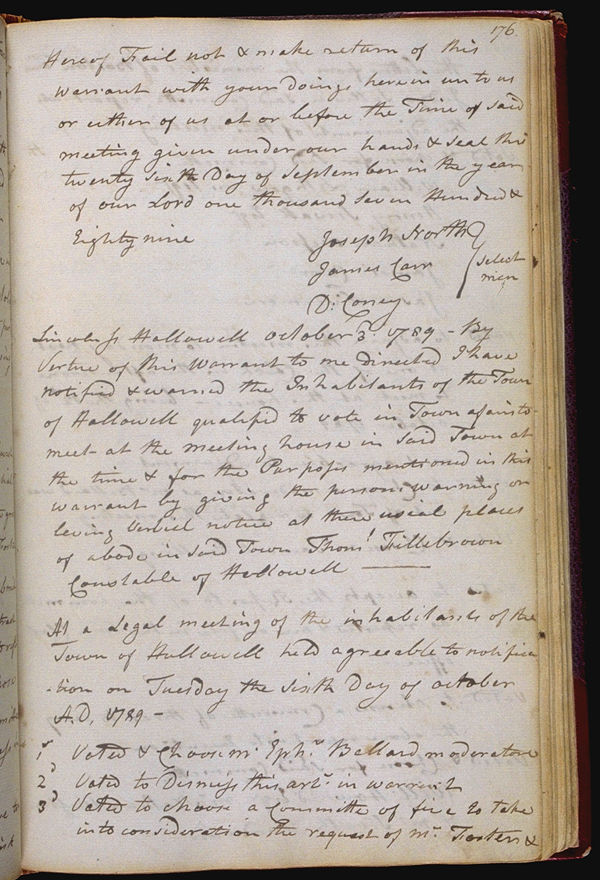 176
Hereof Fail not & make return of this
warrant with your doings herein unto us
or either of us at or before the Time of said
meeting given under our hands & seal this
twenty sixth Day of September in the year
of our Lord one thousand Seven Hundred &
Eighty nine
Joseph North
James Carr
Select
men
D: Coney
Lincoln ss Hallowell October 3d. 1789 - By
Vertue of this Warrant to me Directed I have
notified & warned the Inhabitants of the Town
of Hallowell qualified to vote in Town afairs to
meet at the meeting house in Said Town at
the time & for the Purposes mentioned in this
warrant by giving the persons warning or
leving Verbiel notice at there usial places
of abode in Said Town Thoms. Fillebrown
Constable of Hallowell
At a Legal meeting of the inhabitants of the
Town of Hallowell held agreeable to notifica
-tion on Tuesday the Sixth Day of October
A.D. 1789 -
1st Voted & Choose mr. Ephm. Ballard moderator
2d Voted to Dismiss this artl. in warrent
3d Voted to choose a Committe of five to take
into consideration the request of mr. Fosters &